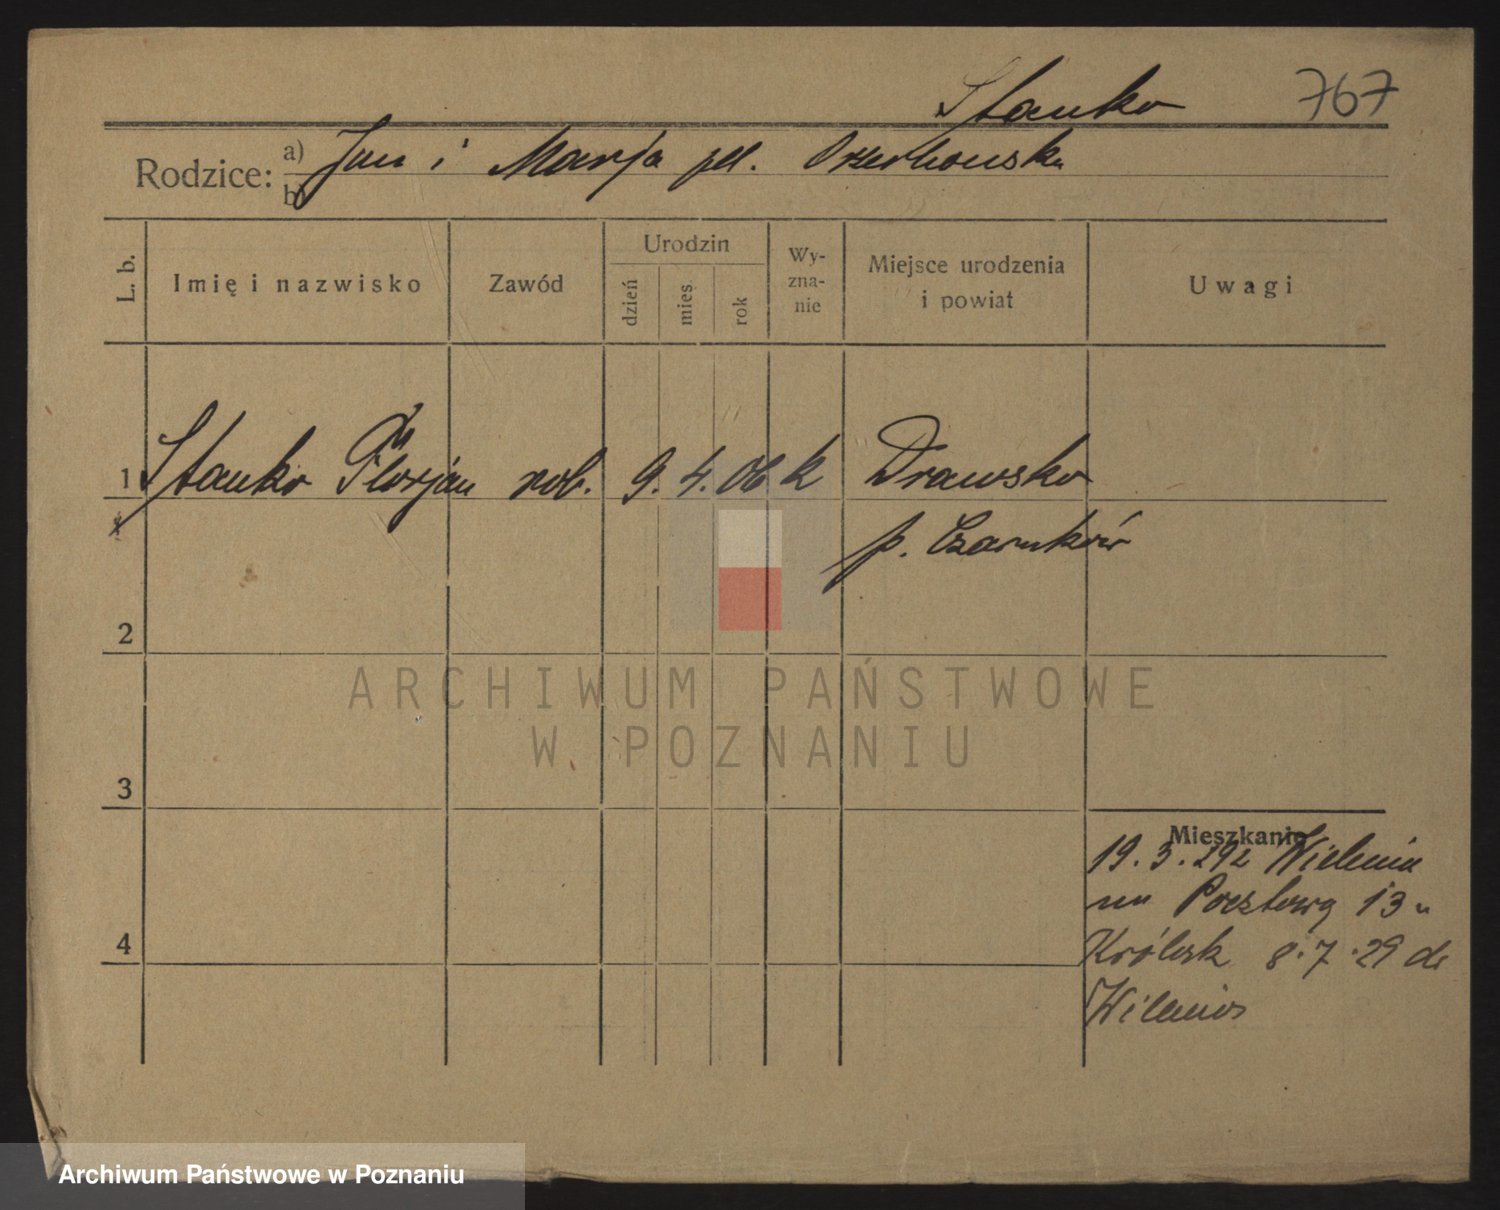 Stanko 767
Rodzice: a) Jan i Marja
b)
L. b. Imię i nazwisko Zawód Urodzin dzień mies rok Wy-zna-nie Miejsce urodzenia i powiat Uwagi
1 Stanko Florjan rob. 9. 4. 06 k Drawsko
p. Czarnków
2
ARCHIWUM PAŃSTWOWE
W POZNANIU
3
Mieszkanie
19. 3. 29 z Wielenia
na Pocztową 13
8.7.29 do
Wielenia
4
Archiwum Państwowe w Poznaniu